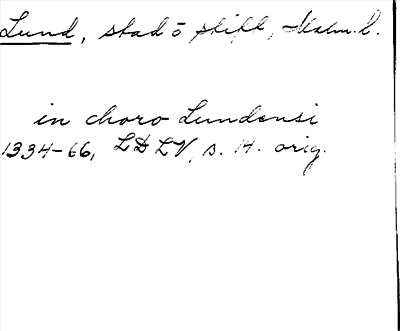 Lund, stad o stift, Malm. l.
in choro Lundensi
1334-66, LDLV, s. 14. orig.